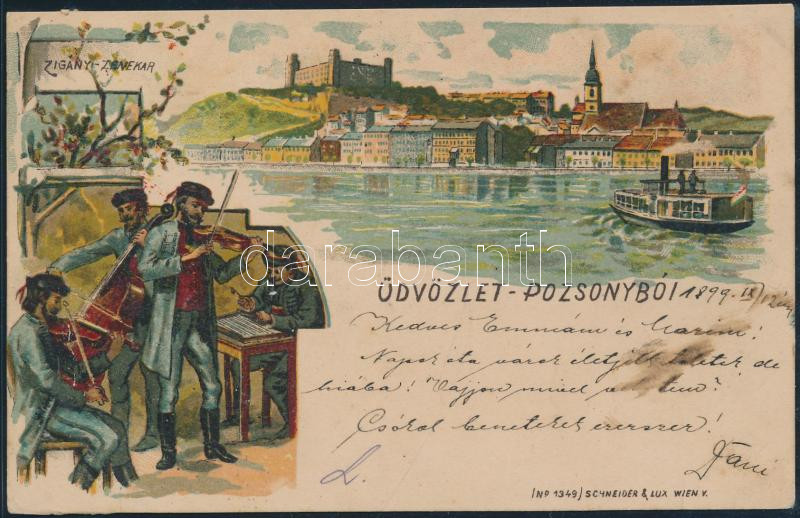 ZIGÁNYI-ZENEKAR
darabanth
ÜDVÖZLET-POZSONYBÓl 1899. IX/
Kedves Emmám és
Napok óta várok életjelt tőletek de
hiába! Vajjon mivel tem?
Csókol beneteket ezerszer!
Dani
L.
(No 1349) SCHNEIDER & LUX WIEN V.